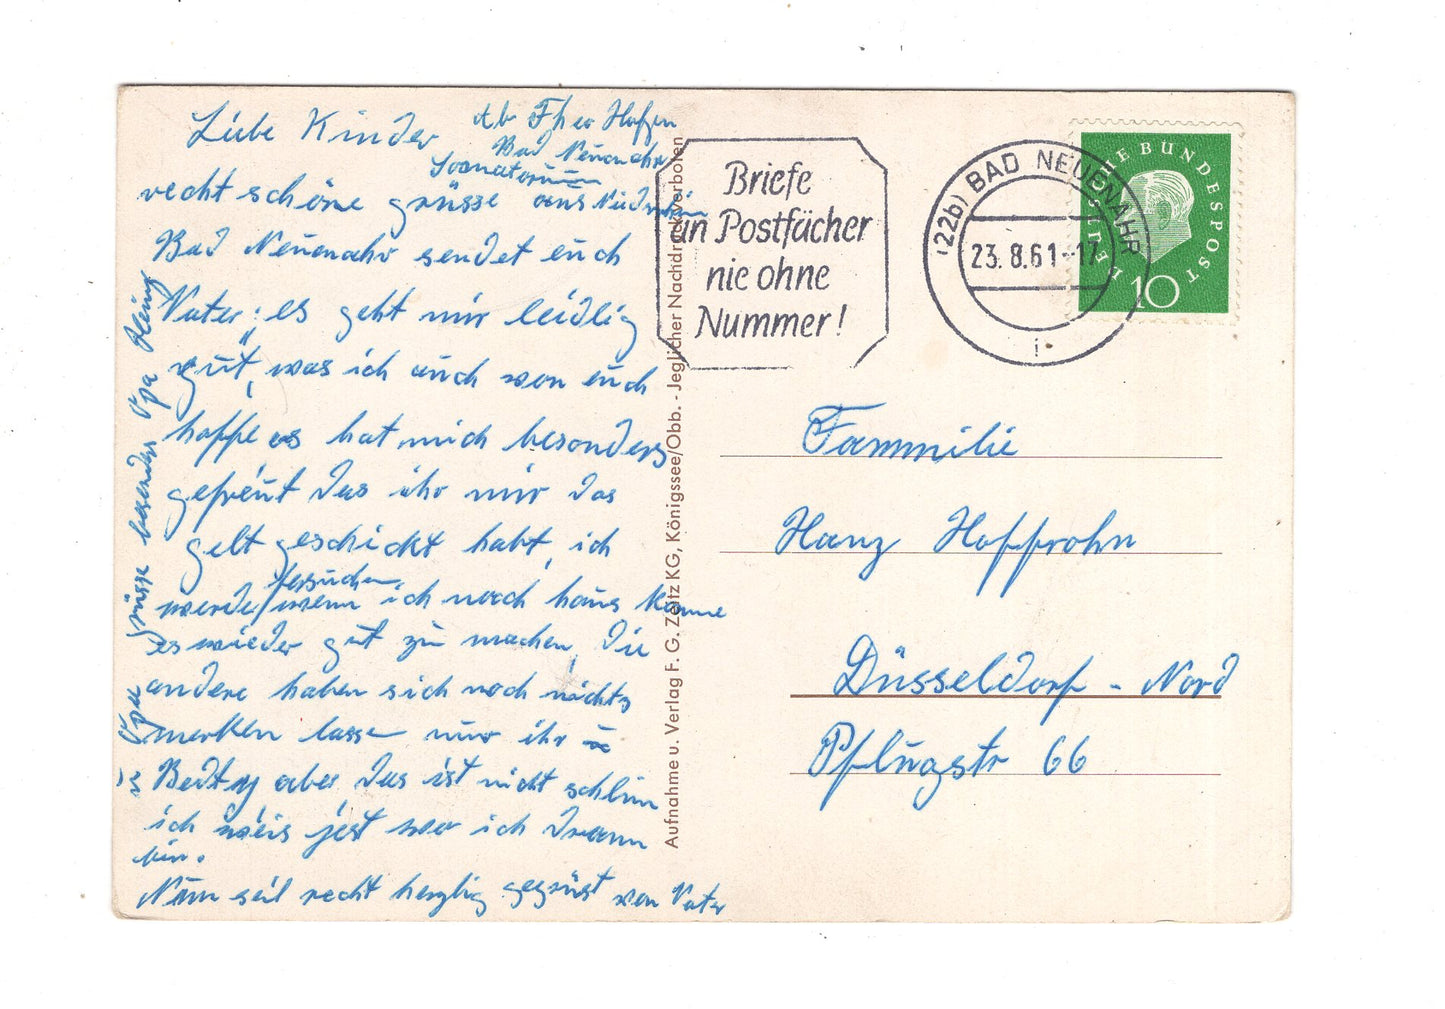 Liebe Kinder
Ab. Theo Hafen
Bad Neuenahr
Sanatorium
recht schöne grüsse aus
Bad Neuenahr sendet euch
Vater; es geht mir leidlig
gut, was ich auch von euch
hoffe es hat mich besonders
gefreut das ihr mir das
gelt geschickt habt, ich
versuchen
werde wenn ich nach haus komme
es wieder gut zu machen, die
andere haben sich noch nichts
merken lasse nur ihr u
aber das ist nicht schlim
ich weis jest wo ich drann
bin.
Nun seit recht herzlig gegrüst von Vater
grüsse besonder Opa
Aufnahme u. Verlag F. G. Zeitz KG, Königssee/Obb. - Jeglicher Nachdruck verboten
Briefe
an Postfächer
nie ohne
Nummer!
(22b) BAD NEUENAHR
23.8.61-17
i
DEUTSCHE BUNDESPOST
10
Fammilie
Hanz Hoffrohn
Düsseldorf - Nord
Pflugstr 66